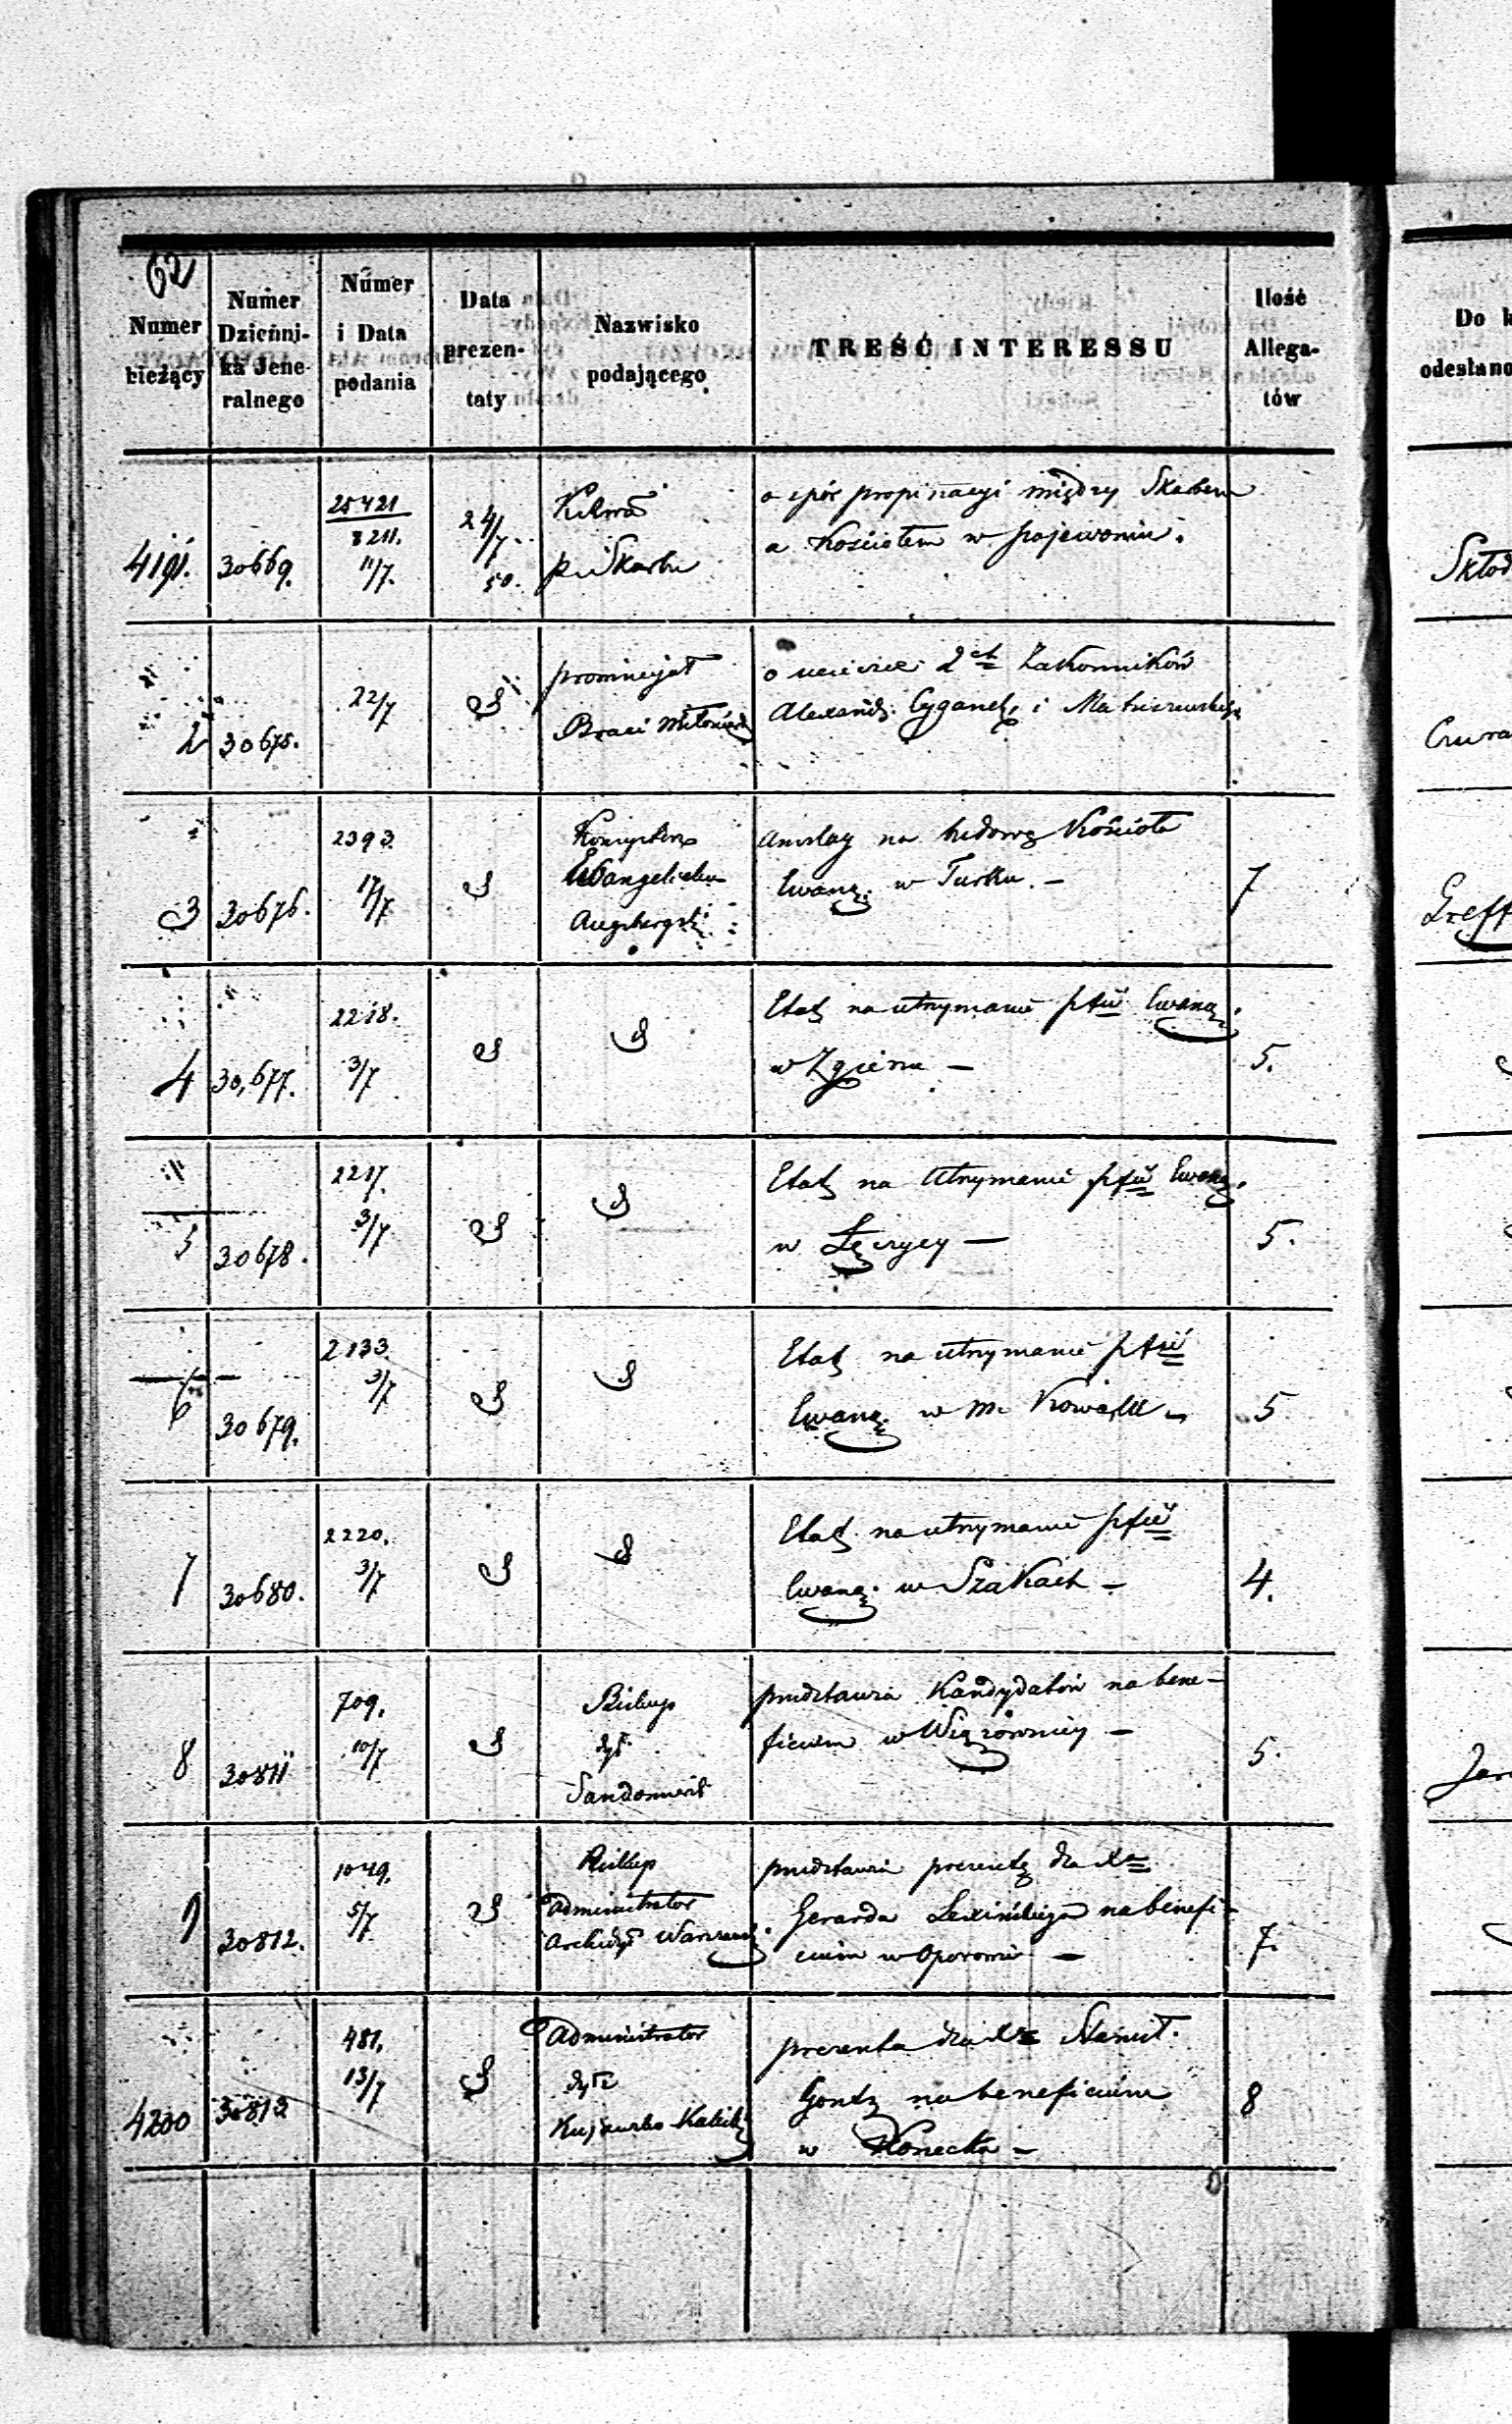 62
Numer bieżący
Numer Dzienni- ka Jene- ralnego
Numer i Data podania
Data prezen- taty
Nazwisko podającego
TREŚĆ INTERESSU
Ilość Allega- tów
Do k
odesłano
4191. 30669. 25421 / 8211. 11/7. 24/7 50.
o spór propinacyi między Skarbem
a Kościołem w
2 30675. 22/7
Prowincyał
Braci Miłosiern
o ucieczce 2ch Zakonników
Alexand. Cygańsk. i Matuszewskiego
3 30676. 2393. 17/7
Konsystorz
Ewangelicko
Augsburgski
Anszlag na budowę Kościoła
Ewang. w Turku. — 7
4 30,677. 2218. 3/7
Etat na utrzymanie pfii Ewang.
w Zgierzu — 5.
5 30678. 2217. 3/7
Etat na utrzymanie pfii Ewang.
w Łęczycy — 5.
6 30679. 2133. 3/7
Etat na utrzymanie pfii
Ewang. w m. Kowalu — 5
7 30680. 2220. 3/7
Etat na utrzymanie pfii
Ewang. w Szakach — 4.
8 30811 709. 10/7
Biskup
dyec.
Sandomiersk
przedstawia Kandydatów na bene-
ficium w Wiązownicy — 5.
9 30812. 1049. 5/7
Biskup
Administrator
Archidyec Warszawsk.
przedstawia prezentę dla Xa
Gerarda na benefi-
cium w Oporowie — 7.
4200 30813 481. 13/7
Administrator
dyec
Kujawsko Kalisk
prezenta dla Xa Stanisł.
Gontz na beneficium
w Konecku — 8